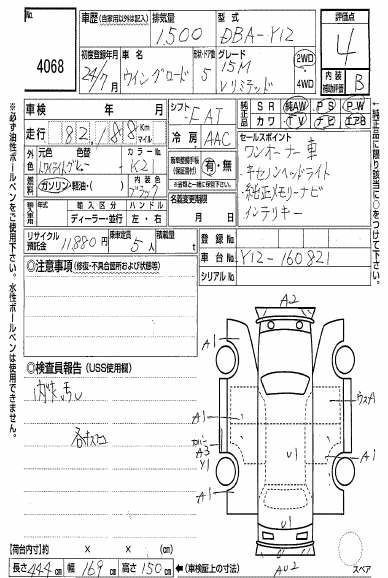 No.
4068
車歴 (自家用以外は記入)
排気量
1,500
型式
DBA-Y12
評価点
4
初度登録年月
24/7月
車名
ウイングロード
形状・ドア数
5
グレード
15M
Vリミテッド
2WD
4WD
内装
補助評価
B
車検 年 月
走行 82,188 Km
マイル
シフト
FAT
冷房
AAC
純正品
SR 純AW PS PW
カワ TV ナビ エアB
外色
元色
色替
カラーNo.
K21
内装色
ブラック
燃料
ガソリン・軽油・( )
有・無
名義変更期限
月 日
セールスポイント
ワンオーナー車
キセノンヘッドライト
純正メモリーナビ
インテリキー
輸入車用
輸入区分
ハンドル
ディーラー・並行
左・右
リサイクル預託金
11880円
乗車定員
5人
積載量
t
登録No.
車台No.
Y12-160821
シリアルNo.
◎注意事項 (修復・不具合箇所および状態等)
◎検査員報告 (USS使用欄)
内装汚レ
A2
A1
A1
A1
A1
A1
A3
Y1
A1
U1
U1
AU2
スペア
【荷台内寸】約 × × (cm)
長さ 444 cm 幅 169 cm 高さ 150 cm ←(車検証上の寸法)
※必ず油性ボールペンをご使用下さい。水性ボールペンは使用できません。
←純正品に限り該当に○をつけて下さい。